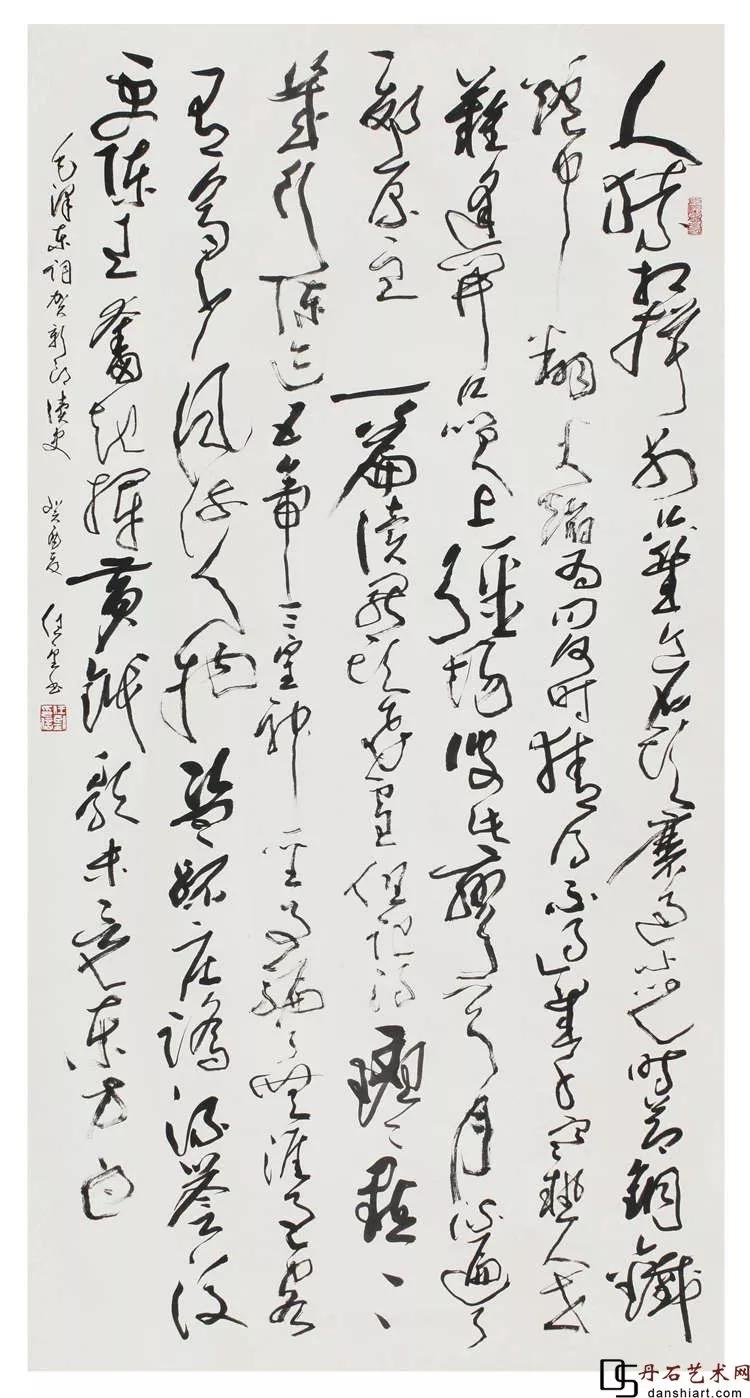 人猿相揖别只幾个石头磨过小儿时节銅鐵
爐中翻火焰为问何时猜得不过幾千寒热人世
難逢開口笑上疆场彼此彎弓月流遍了
郊原血一篇读罢头飞雪但记得斑斑點點
幾行陈迹五帝三皇神聖事骗了無涯过客
有多少风流人物盗跖庄蹻流誉後
更陈王奮起揮黄钺歌未竟东方白
毛泽东词贺新郎读史 癸酉夏
丹石艺术网
danshiart.com